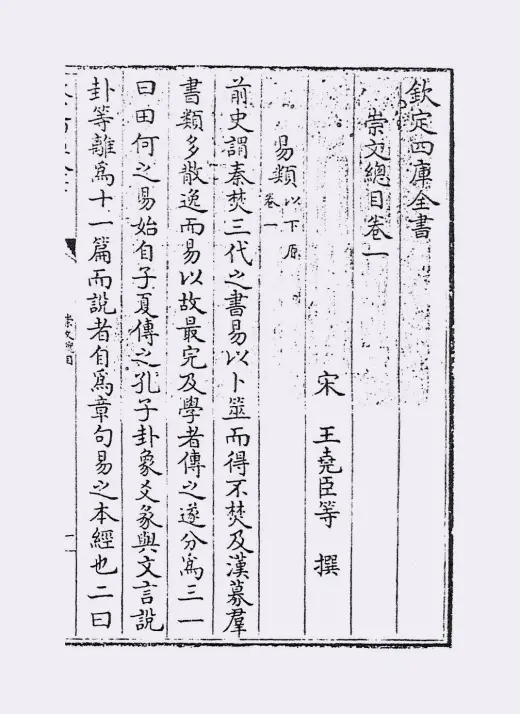 欽定四庫全書
崇文總目卷一
宋 王堯臣等 撰
易類 以下原卷一
前史謂秦焚三代之書易以卜筮而得不焚及漢募羣
書類多散逸而易以故最完及學者傳之遂分爲三一
曰田何之易始自子夏傳之孔子卦象爻彖與文言說
卦等離爲十一篇而說者自爲章句易之本經也二曰
崇文總目
一